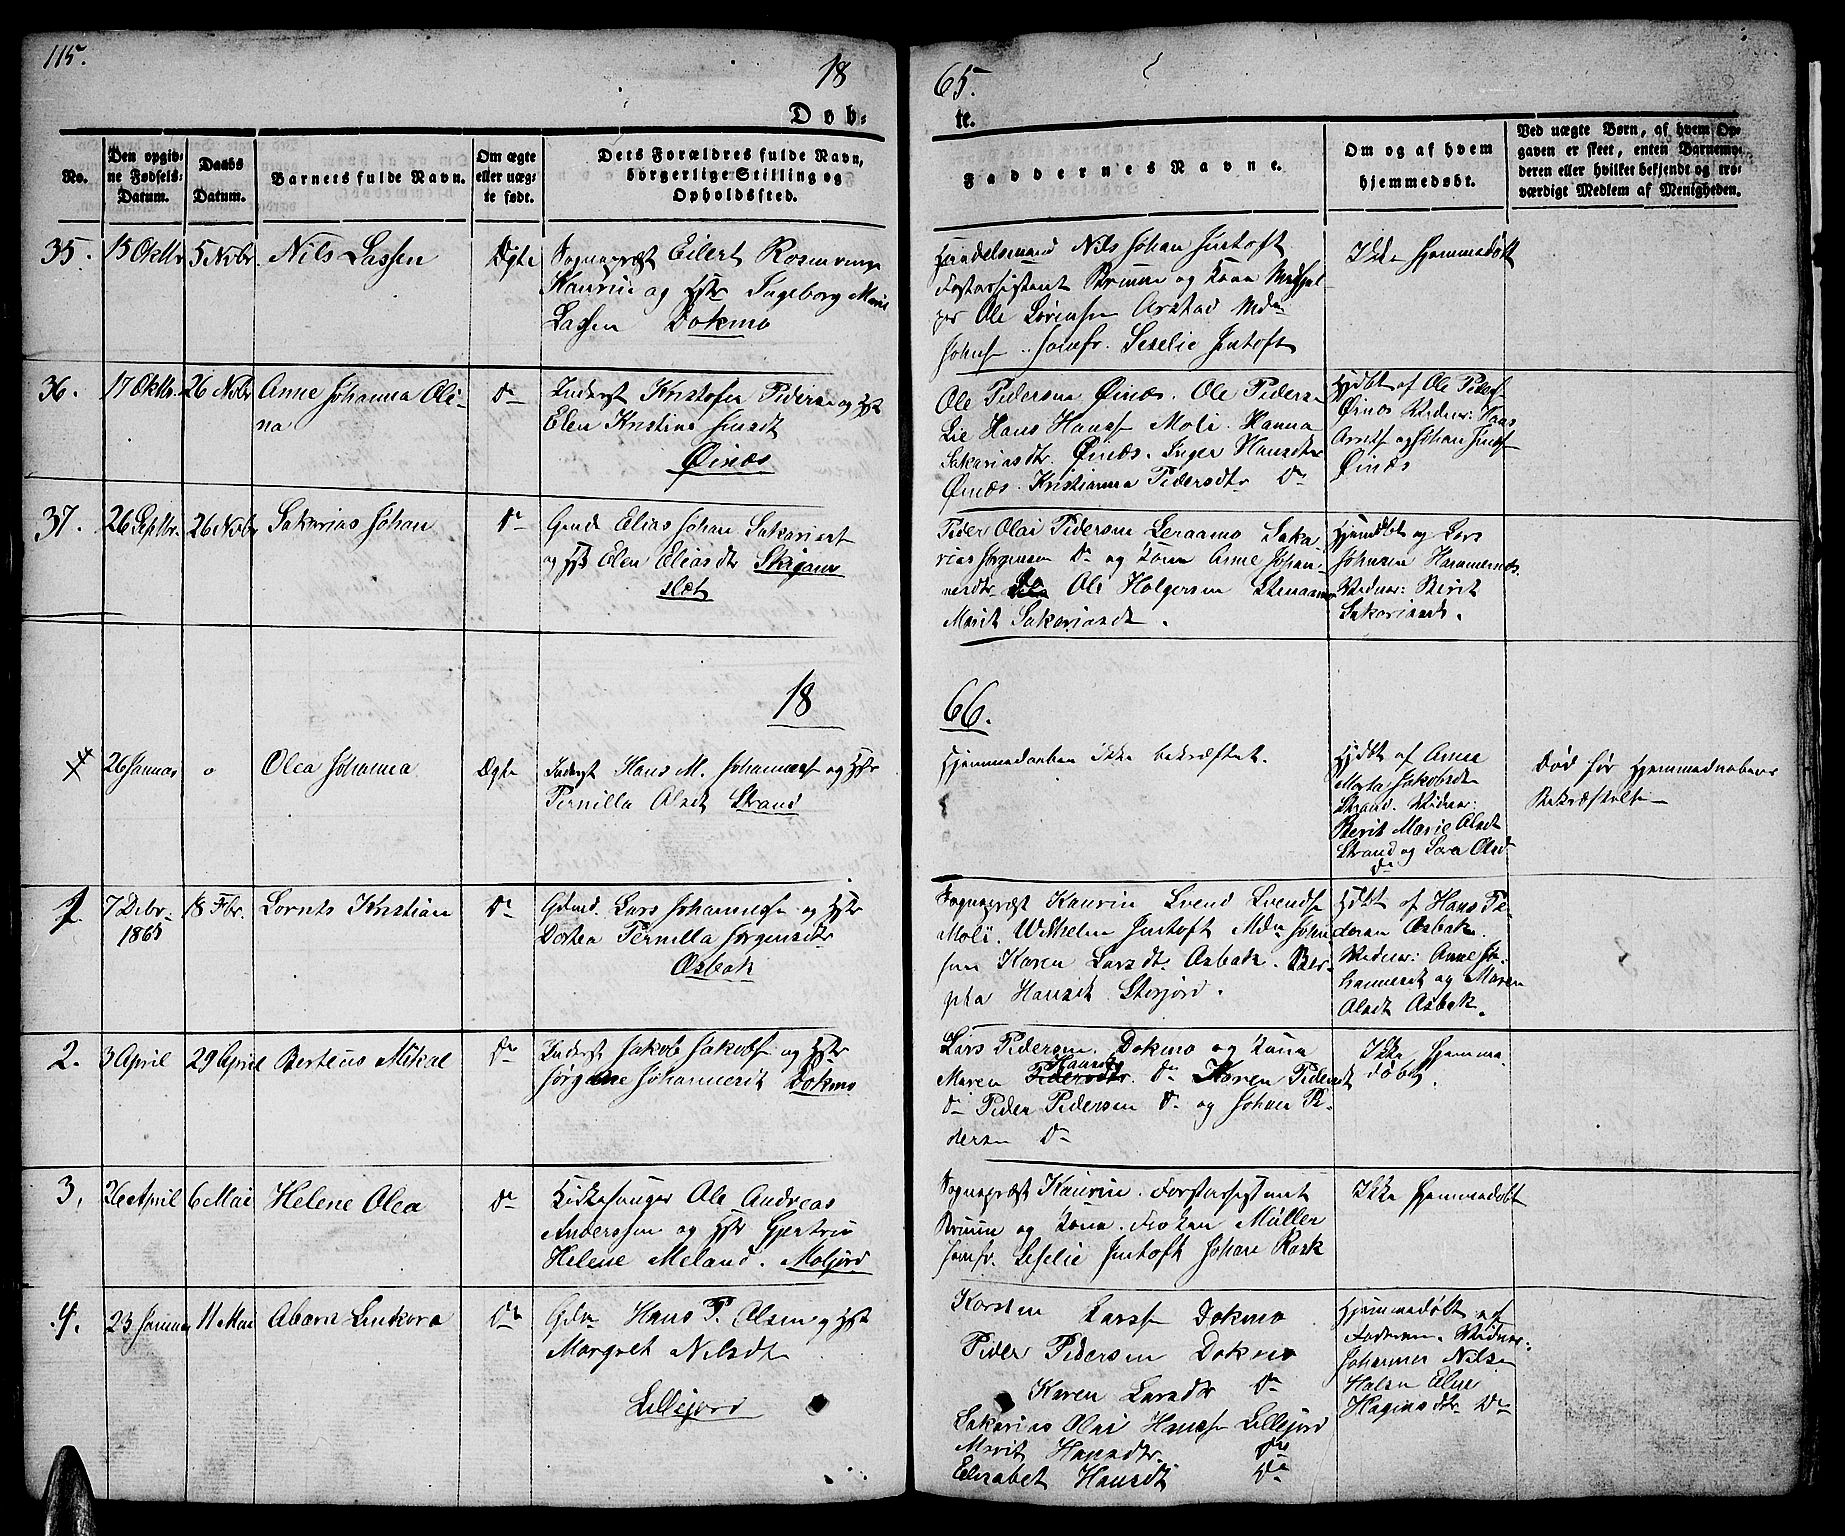 115.
18
65.
Døb-
te.
No.
Den opgiv-
ne Fødsels-
Datum.
Daabs
Datum.
Barnets fulde Navn.
Om ægte
eller uæg-
te født.
Dets Forældres fulde Navn,
borgerlige Stilling og
Opholdssted.
Faddernes Navne.
Om og af hvem
hjemmedøbt.
Ved uægte Børn, af hvem Op-
gaven er skeet, enten Barnemo-
deren eller hvilket bekjendt og tro-
værdigt Medlem af Menigheden.
35.
15 Oktbr
5 Nobr.
Nils Lassen
Ægte
Sognepræst Eilert Rosenvinge
Kaurin og Hstr Ingeborg Marie
Lassen Dokmo
Handelsmand Nils Johan Jentoft
Forstassistent Brunn og Kona
Ole Sørensen Arstad Mdm
Johnsen Jomfr. Seselie Jentoft
Ikke Hjemmedøbt
36.
17 Oktbr.
26 Nobr
Anne Johanna Oli-
na
Do
Inderst Kristofer Pedersen og Hst
Elen Kristine Jensdt
Øinæs
Ole Pedersen Øinæs. Ole Peders
Lie Hans Hanss Moli. Hanna
Sakariasdtr Øinæs. Inger Hansdtr
Øinæs. Kristianna Pedersdtr Do
Hjdbt af Ole Peders
Øinæs Vidner: Hans
Arntss og Johan Jenss
Øinæs
37.
26 Septbr.
26 Nobr
Sakarias Johan
Do
Gmd Elias Johan Sakariass
og Hst Elen Eliasdtr Skigam
slet
Peder Olai Pedersen Leraamo Saka
rias Jørgensen Do og Kone Anne Johan-
nesdtr Ole Holgersen Stenaamo
Marit Sakariasdt.
Hjemdbt og Lars
Johnsen Hammernæs.
Vidner: Berit
Sakariasdt.
18
66.
26 Januar
o
Olea Johanna
Ægte
Inderst Hans M. Johanness og Hstr
Pernilla Olsdt Strand
Hjemmedaaben ikke bekræftet.
Hjdbt af Anne
Marta Jakobsdtr
Strand. Vidner:
Berit Marie Olsdt
Strand og Sara Olsd
Do
Død før Hjemmedaabens
Bekræftelse
1.
7 Debr
1865
18 Fbr.
Lornts Kristian
Do
Gdmd. Lars Johannessen og Hstr
Dortea Pernilla Jørgensdtr
Osbak
Sognepræst Kaurin Svend Svends
Moli. Wilhelm Jentoft Mdm John
sen Karen Larsdt Osbak. Ber-
gita Hansdt Storjord.
Hjdbt af Hans Pe-
dersen Osbak.
Vidner: Anne Jo-
hannesdt og Maren
Olsdt Osbak.
2.
3 April
29 April
Berteus Mikal
Do
Inderst Jakob Jakobs og Hstr
Jørgine Johannesdt Dokmo
Lars Pedersen. Dokmo og Kona
Maren Hansdtr Do Karen Pedersdt
Do Peder Pedersen Do og Johan Pe-
dersen Do
Ikke Hjemme
døbt.
3.
26 April
6 Mai
Helene Olea
Do
Kirkesanger Ole Andreas
Anderssen og Hstr Gjertrui
Helene Meland. Moljord
Sognepræst Kaurin. Forstassistent
Brunn og Kona. Frøken Müller
Jomfr. Seselie Jentoft Johan Rask
Ikke Hjemmedøbt
4.
23 Januar
11 Mai
Abern Linkora
Do
Gdm Hans P. Olsen og Hst
Margret Nilsdt
Lillejord
Karsten Larss Dokmo
Peder Pedersen Dokmo
Karen Larsdtr Do
Sakarias Olai Hanss Lillejord
Marit Hansdtr. Do
Elisabet Hansdt Do
Hjemmedøbt af
Faderen. Vidner:
Johannes Nilsen
Halsen Elen
Haginsdtr Do